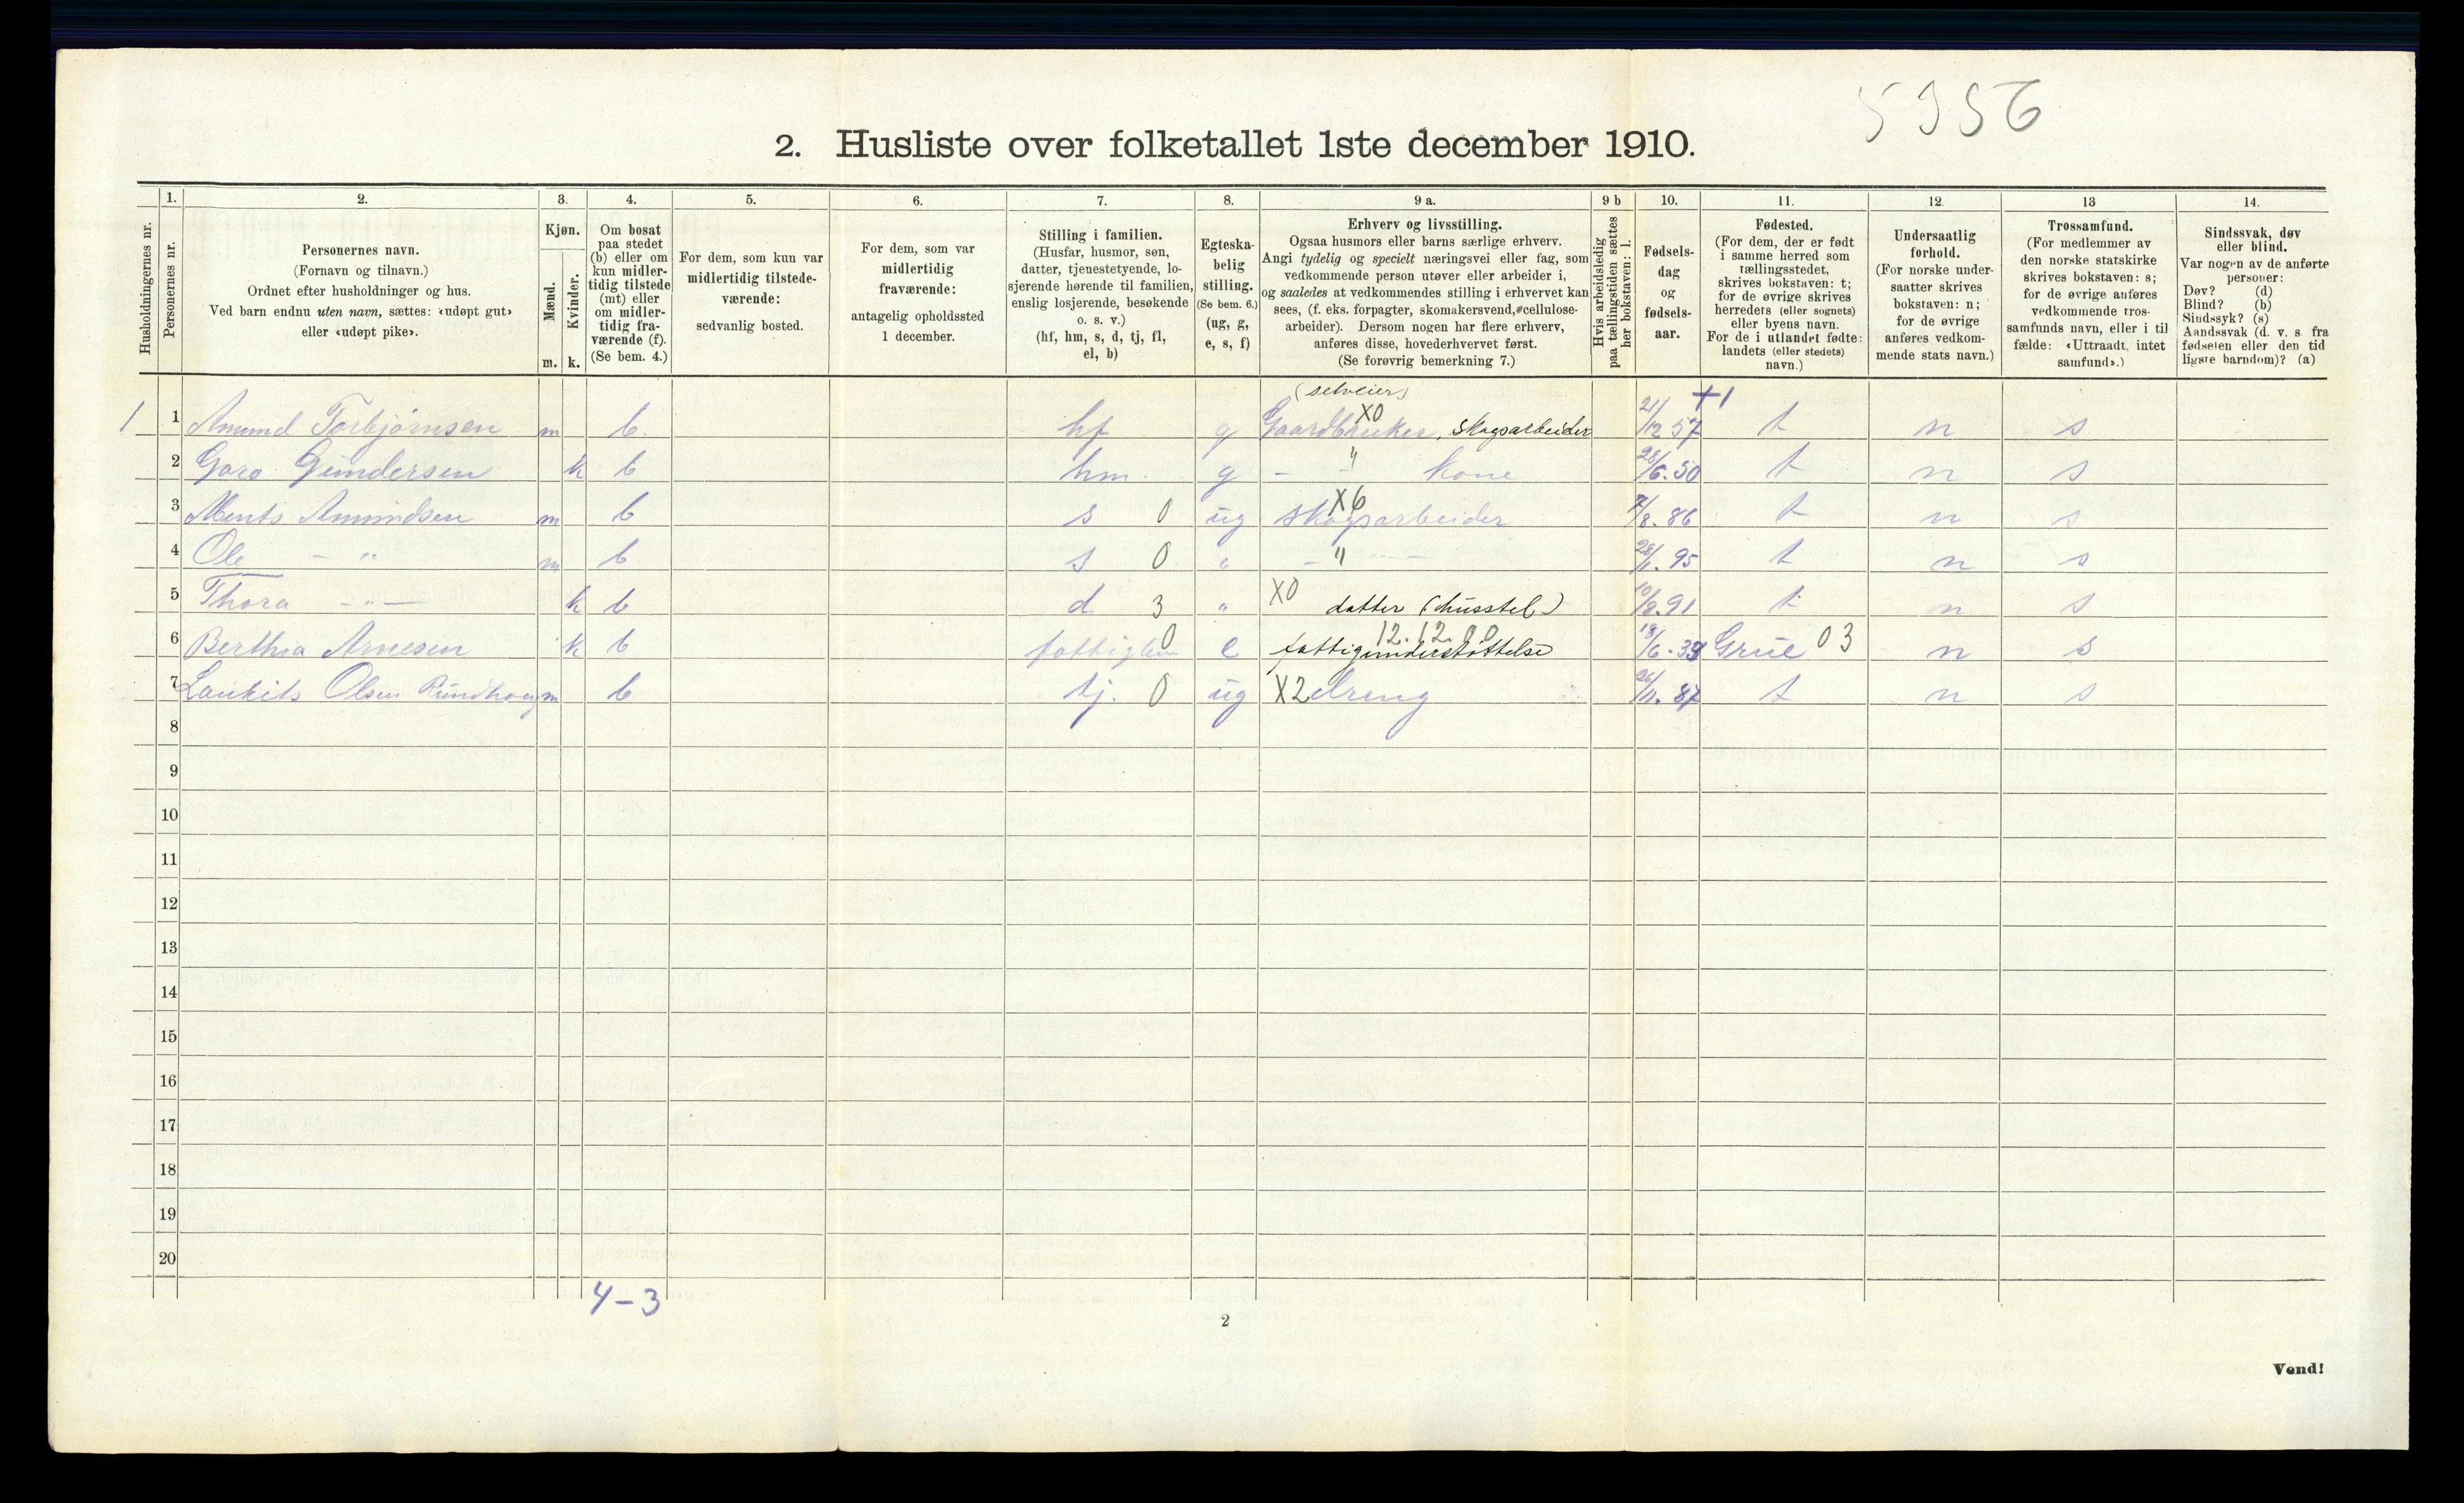 5956
2. Husliste over folketallet 1ste december 1910.
Husholdningernes nr.
1.
Personernes nr.
2.
Personernes navn.
(Fornavn og tilnavn.)
Ordnet efter husholdninger og hus.
Ved barn endnu uten navn, sættes: «udøpt gut»
eller «udøpt pike».
3.
Kjøn.
Mænd.
m.
Kvinder.
k.
4.
Om bosat
paa stedet
(b) eller om
kun midler-
tidig tilstede
(mt) eller
om midler-
tidig fra-
værende (f).
(Se bem. 4.)
5.
For dem, som kun var
midlertidig tilstede-
værende:
sedvanlig bosted.
6.
For dem, som var
midlertidig
fraværende:
antagelig opholdssted
1 december.
7.
Stilling i familien.
(Husfar, husmor, søn,
datter, tjenestetyende, lo-
sjerende hørende til familien,
enslig losjerende, besøkende
o. s. v.)
(hf, hm, s, d, tj, fl,
el, b)
8.
Egteska-
belig
stilling.
(Se bem. 6.)
(ug, g,
e, s, f)
9 a.
Erhverv og livsstilling.
Ogsaa husmors eller barns særlige erhverv.
Angi tydelig og specielt næringsvei eller fag, som
vedkommende person utøver eller arbeider i,
og saaledes at vedkommendes stilling i erhvervet kan
sees, (f. eks. forpagter, skomakersvend, cellulose-
arbeider). Dersom nogen har flere erhverv,
anføres disse, hovederhvervet først.
(Se forøvrig bemerkning 7.)
9 b
Hvis arbeidsledig
paa tællingstiden sættes
her bokstaven: l.
10.
Fødsels-
dag
og
fødsels-
aar.
11.
Fødested.
(For dem, der er født
i samme herred som
tællingsstedet,
skrives bokstaven: t;
for de øvrige skrives
herredets (eller sognets)
eller byens navn.
For de i utlandet fødte:
landets (eller stedets)
navn.)
12.
Undersaatlig
forhold.
(For norske under-
saatter skrives
bokstaven: n;
for de øvrige
anføres vedkom-
mende stats navn.)
13
Trossamfund.
(For medlemmer av
den norske statskirke
skrives bokstaven: s;
for de øvrige anføres
vedkommende tros-
samfunds navn, eller i til
fælde: «Uttraadt, intet
samfund».)
14.
Sindssvak, døv
eller blind.
Var nogen av de anførte
personer:
Døv? (d)
Blind? (b)
Sindssyk? (s)
Aandssvak (d. v. s. fra
fødselen eller den tid
ligste barndom)? (a)
(selveier) +1
1 1 Amund Torbjørnsen m b. hf g X0 Gaardbruker, skogsarbeider 21/12 57 t n s
2 Goro Gundersen k b hm. g - " kone 28/6. 50 t n s
3 Ments Amundsen m b s 0 ug X6 skogsarbeider 7/8. 86 t n s
4 Ole - " m b s 0 " - " - 28/1. 95 t n s
5 Thora - " - k b d 3 " X0 datter (husstel) 10/8. 91 t n s
6 Berthea Arnesen k b fattiglem 0 e 12.12.00 fattigunderstøttelse 18/6. 39 Grue 03 n s
7 Laukits Olsen Rundhaug m b tj. 0 ug X2 dreng 26/11. 87 t n s
8
9
10
11
12
13
14
15
16
17
18
19
20
4-3
2
Vend!